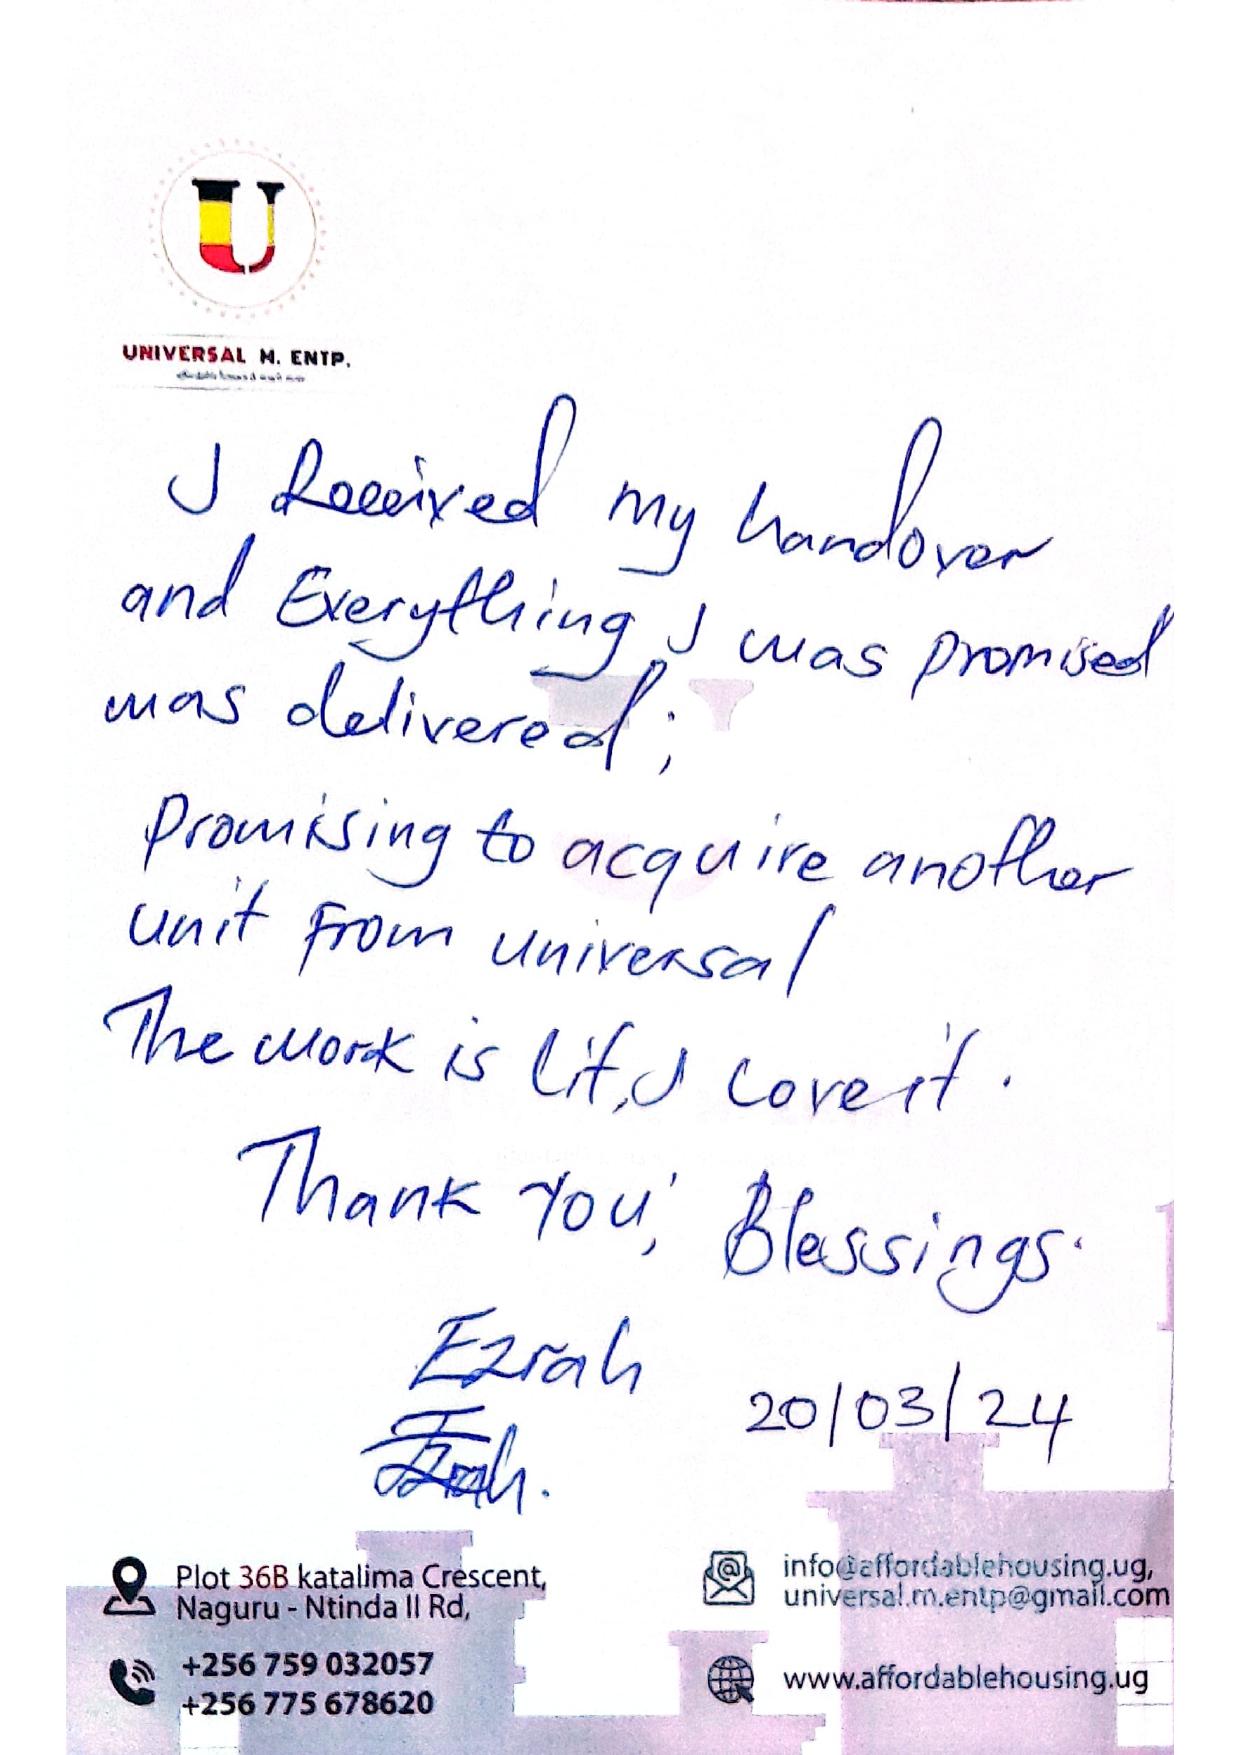 U
UNIVERSAL M. ENTP.
I Received my handover
and Everything I was promised
was delivered;
Promising to acquire another
unit From universal
The work is lit, I love it.
Thank You; Blessings.
Ezrah
20/03/24
Ezrah.
Plot 36B katalima Crescent,
Naguru - Ntinda II Rd,
+256 759 032057
+256 775 678620
info@affordablehousing.ug,
universal.m.entp@gmail.com
www.affordablehousing.ug